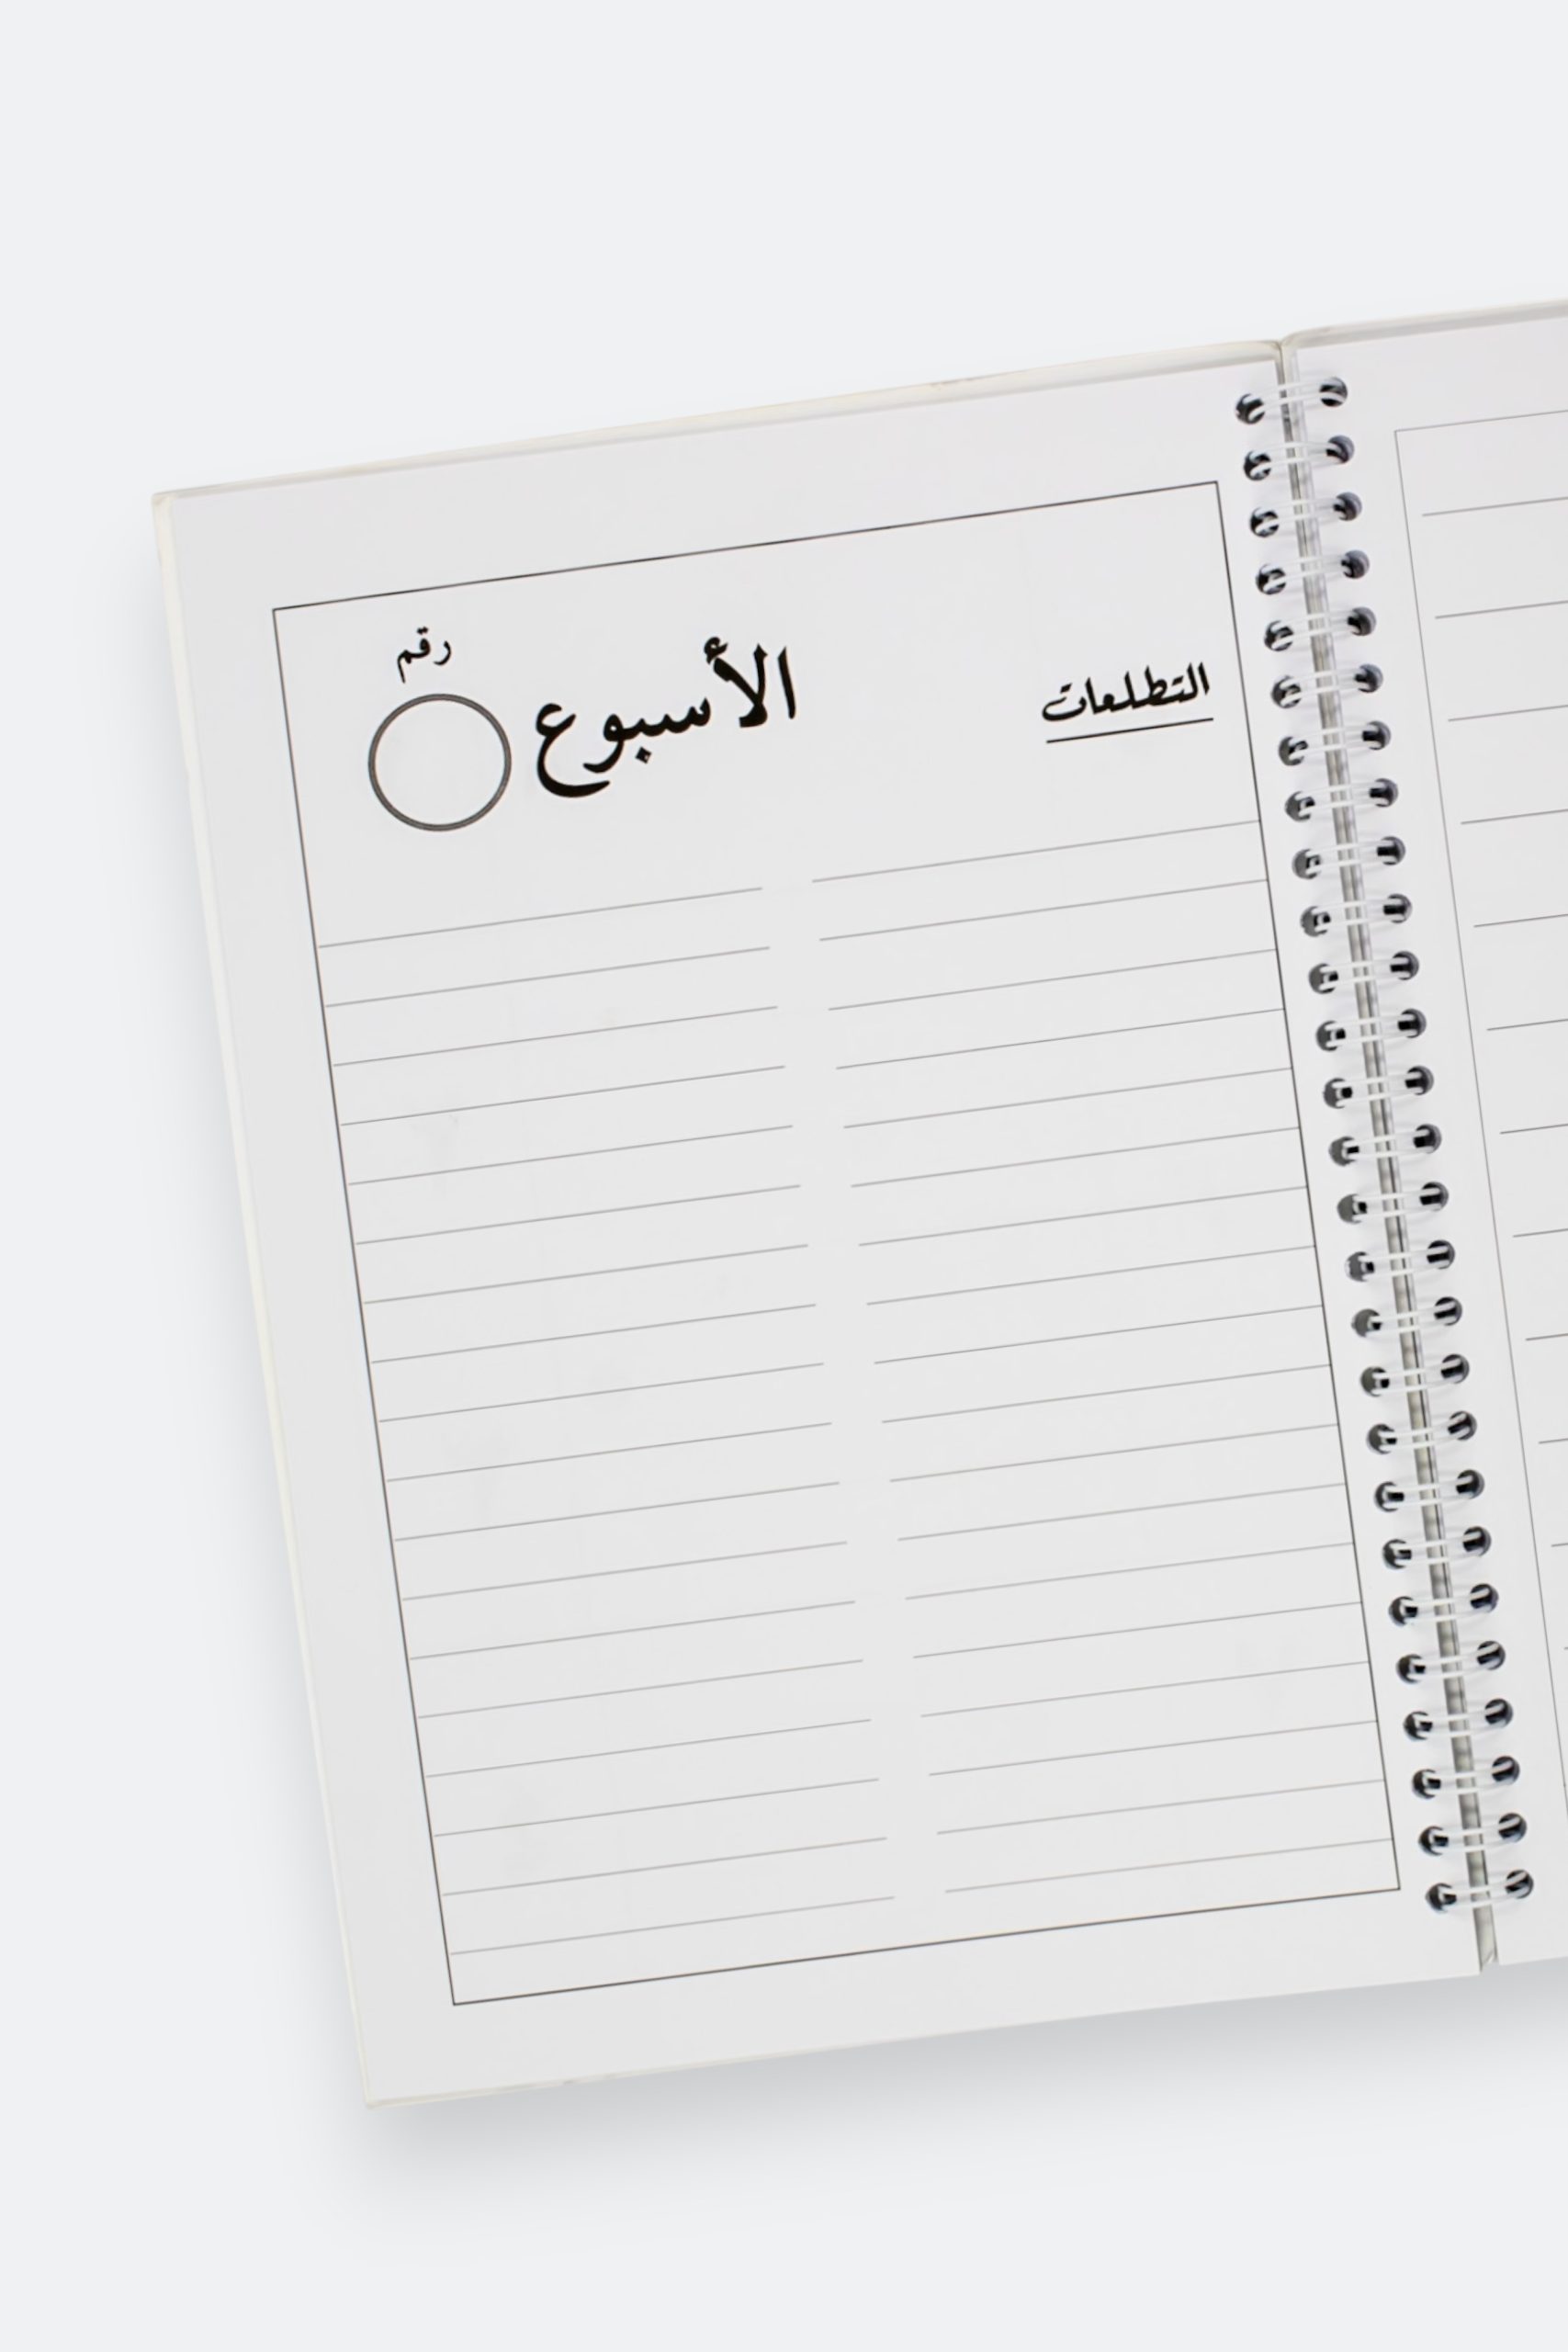 التطلعات
الأسبوع
رقم